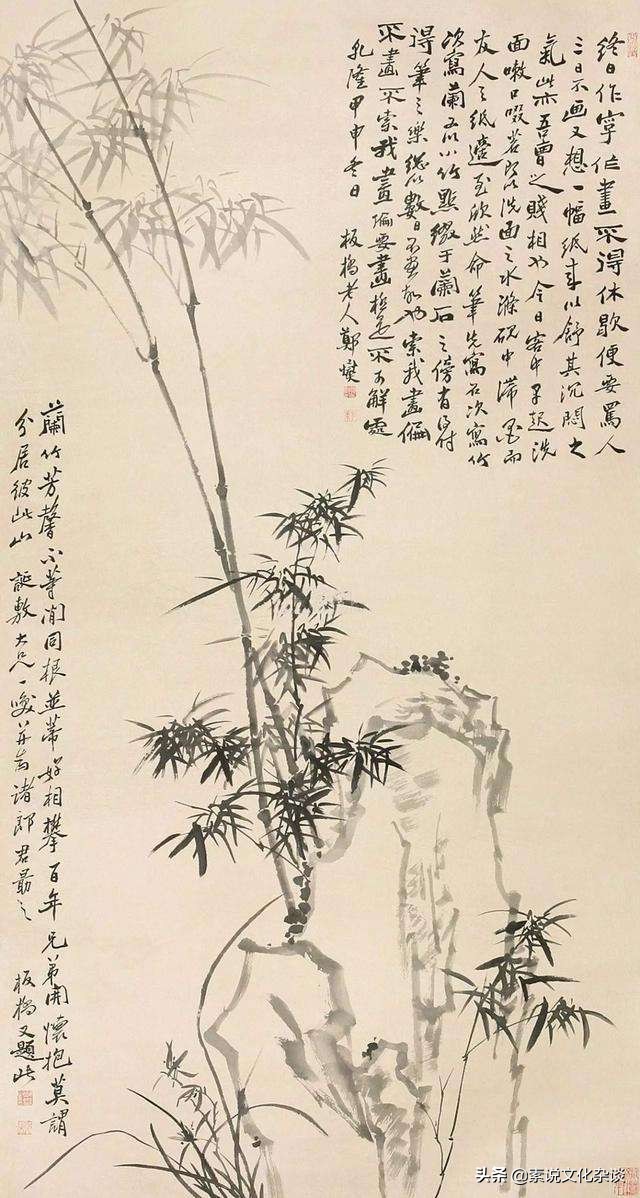 終日作字作畫不得休歇便要罵人
三日不画又想一幅紙来以舒其沉悶之
氣此亦吾曹之賤相也今日客中早起洗
面嗽口啜茗即以洗面之水滌硯中滯墨而
友人之紙適至欣然命筆先寫石次寫竹
次寫蘭又以小竹點綴于蘭石之傍有
得筆之樂總以數日不畫故也索我畫偏
不畫不索我畫偏要畫極是不可解處
乾隆甲申冬日 板橋老人鄭燮
蘭竹芳馨不等閒同根並蒂好相攀百年兄弟開懷抱莫謂
分居彼此山 誕敷大兄一噱并示诸郎君勗之 板橋又題此
头条 @素说文化杂谈